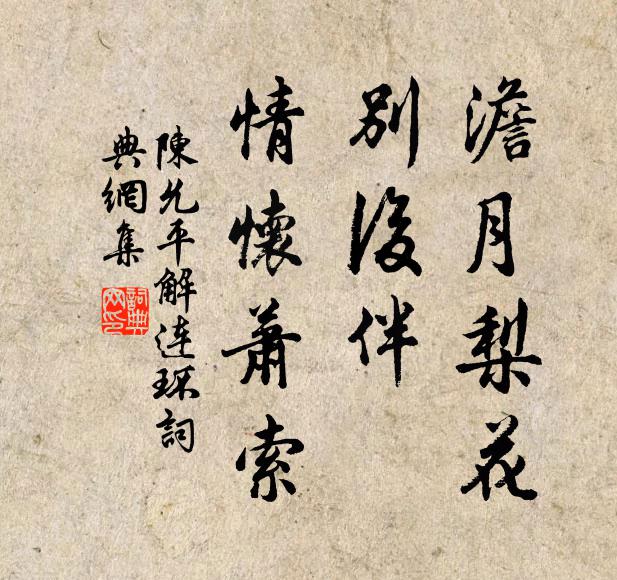 澹月梨花
別後伴
情懷蕭索
陳允平解連环詞
典網集
詞典
网印